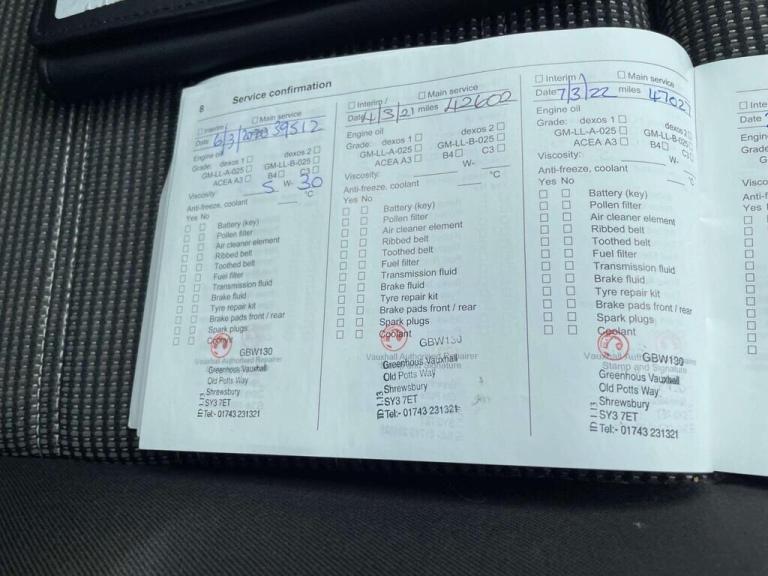 8 Service confirmation
☐ Interim / ☐ Main service
Date 6/3/2020 39512
Engine oil
Grade: dexos 1 ☐ dexos 2 ☐
GM-LL-A-025 ☐ GM-LL-B-025 ☐
ACEA A3 ☐ B4 ☐ C3 ☐
Viscosity: 5 W- 30
Anti-freeze, coolant °C
Yes No
☐ ☐ Battery (key)
☐ ☐ Pollen filter
☐ ☐ Air cleaner element
☐ ☐ Ribbed belt
☐ ☐ Toothed belt
☐ ☐ Fuel filter
☐ ☐ Transmission fluid
☐ ☐ Brake fluid
☐ ☐ Tyre repair kit
☐ ☐ Brake pads front / rear
☐ ☐ Spark plugs
☐ ☐ Coolant
GBW130
Vauxhall Authorised Repairer
Greenhous Vauxhall
Old Potts Way
Shrewsbury
SY3 7ET
Tel:- 01743 231321
☐ Interim / ☐ Main service
Date 4/3/21 miles 42602
Engine oil
Grade: dexos 1 ☐ dexos 2 ☐
GM-LL-A-025 ☐ GM-LL-B-025 ☐
ACEA A3 ☐ B4 ☐ C3 ☐
Viscosity: W-
Anti-freeze, coolant °C
Yes No
☐ ☐ Battery (key)
☐ ☐ Pollen filter
☐ ☐ Air cleaner element
☐ ☐ Ribbed belt
☐ ☐ Toothed belt
☐ ☐ Fuel filter
☐ ☐ Transmission fluid
☐ ☐ Brake fluid
☐ ☐ Tyre repair kit
☐ ☐ Brake pads front / rear
☐ ☐ Spark plugs
☐ ☐ Coolant
GBW130
Vauxhall Authorised Repairer
Greenhous Vauxhall
Old Potts Way
Shrewsbury
SY3 7ET
Tel:- 01743 231321
☐ Interim / ☐ Main service
Date 7/3/22 miles 47027
Engine oil
Grade: dexos 1 ☐ dexos 2 ☐
GM-LL-A-025 ☐ GM-LL-B-025
ACEA A3 ☐ B4 ☐ C3
Viscosity: W-
Anti-freeze, coolant °C
Yes No
☐ ☐ Battery (key)
☐ ☐ Pollen filter
☐ ☐ Air cleaner element
☐ ☐ Ribbed belt
☐ ☐ Toothed belt
☐ ☐ Fuel filter
☐ ☐ Transmission fluid
☐ ☐ Brake fluid
☐ ☐ Tyre repair kit
☐ ☐ Brake pads front / rear
☐ ☐ Spark plugs
☐ ☐ Coolant
GBW130
Stamp and Signature
Greenhous Vauxhall
Old Potts Way
Shrewsbury
SY3 7ET
Tel:- 01743 231321
☐ Inte
Date
Engin
Grade
G
Visco
Anti-f
Yes